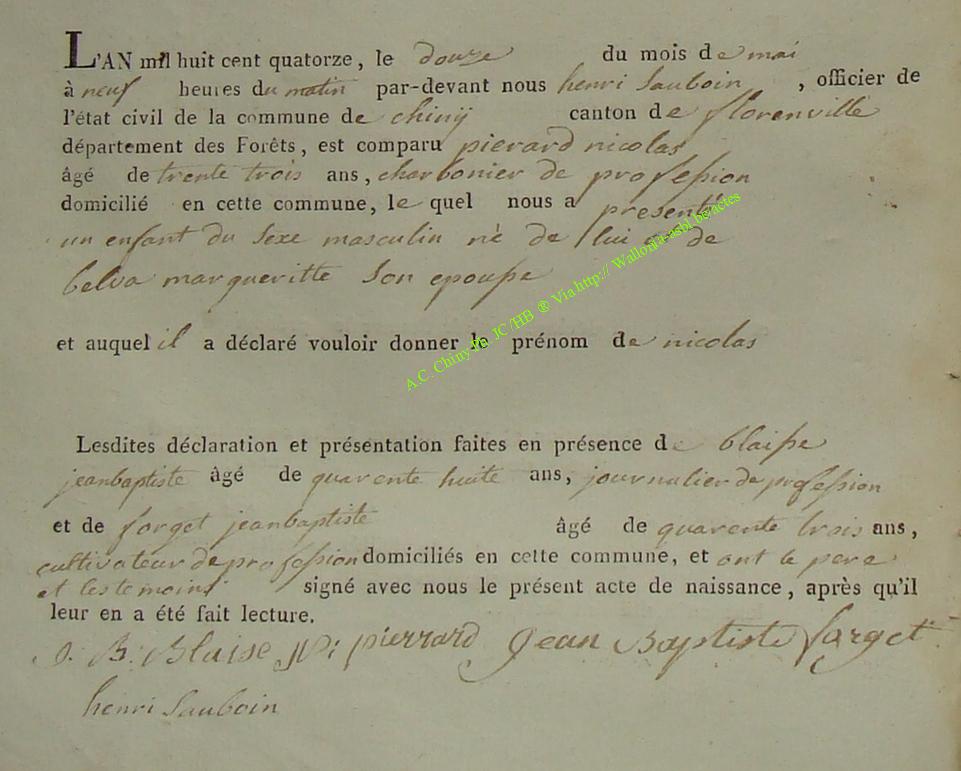 L'AN mil huit cent quatorze, le douze du mois de mai
à neuf heures du matin par-devant nous henri Sauboin, officier de
l'état civil de la commune de chinÿ canton de florenville
département des Forêts, est comparu pierard nicolas
âgé de trente trois ans, charbonier de profession
domicilié en cette commune, le quel nous a presenté
un enfant du sexe masculin né de lui et de
belva margueritte son epouse
et auquel il a déclaré vouloir donner le prénom de nicolas
Lesdites déclaration et présentation faites en présence de blaise
jeanbaptiste âgé de quarente huite ans, journalier de profession
et de forget jeanbaptiste âgé de quarente trois ans,
cultivateur de profession domiciliés en cette commune, et ont le pere
et les temoins signé avec nous le présent acte de naissance, après qu'il
leur en a été fait lecture.
J. B. Blaise N: pierrard Jean Baptiste forget
henri Sauboin
A.C. Chiny Ph. JC /HB ® Via http:// Wallonia-asbl.be/actes